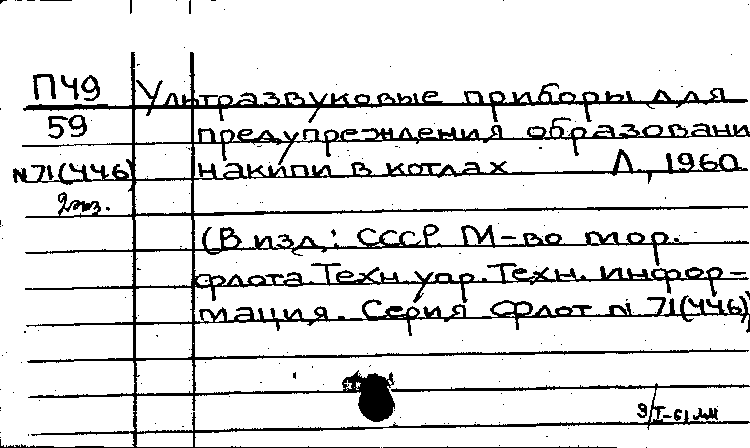 П49
59
N71(446)
2 экз.
Ультразвуковые приборы для
предупреждения образовани
накипи в котлах Л., 1960
(В изд.: СССР. М-во мор.
флота. Техн. упр. Техн. инфор-
мация. Серия Флот N 71(446)
9/I-61